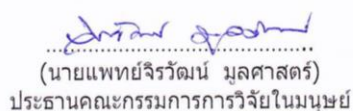 (นายแพทย์จิรวัฒน์ มูลศาสตร์)
ประธานคณะกรรมการการวิจัยในมนุษย์